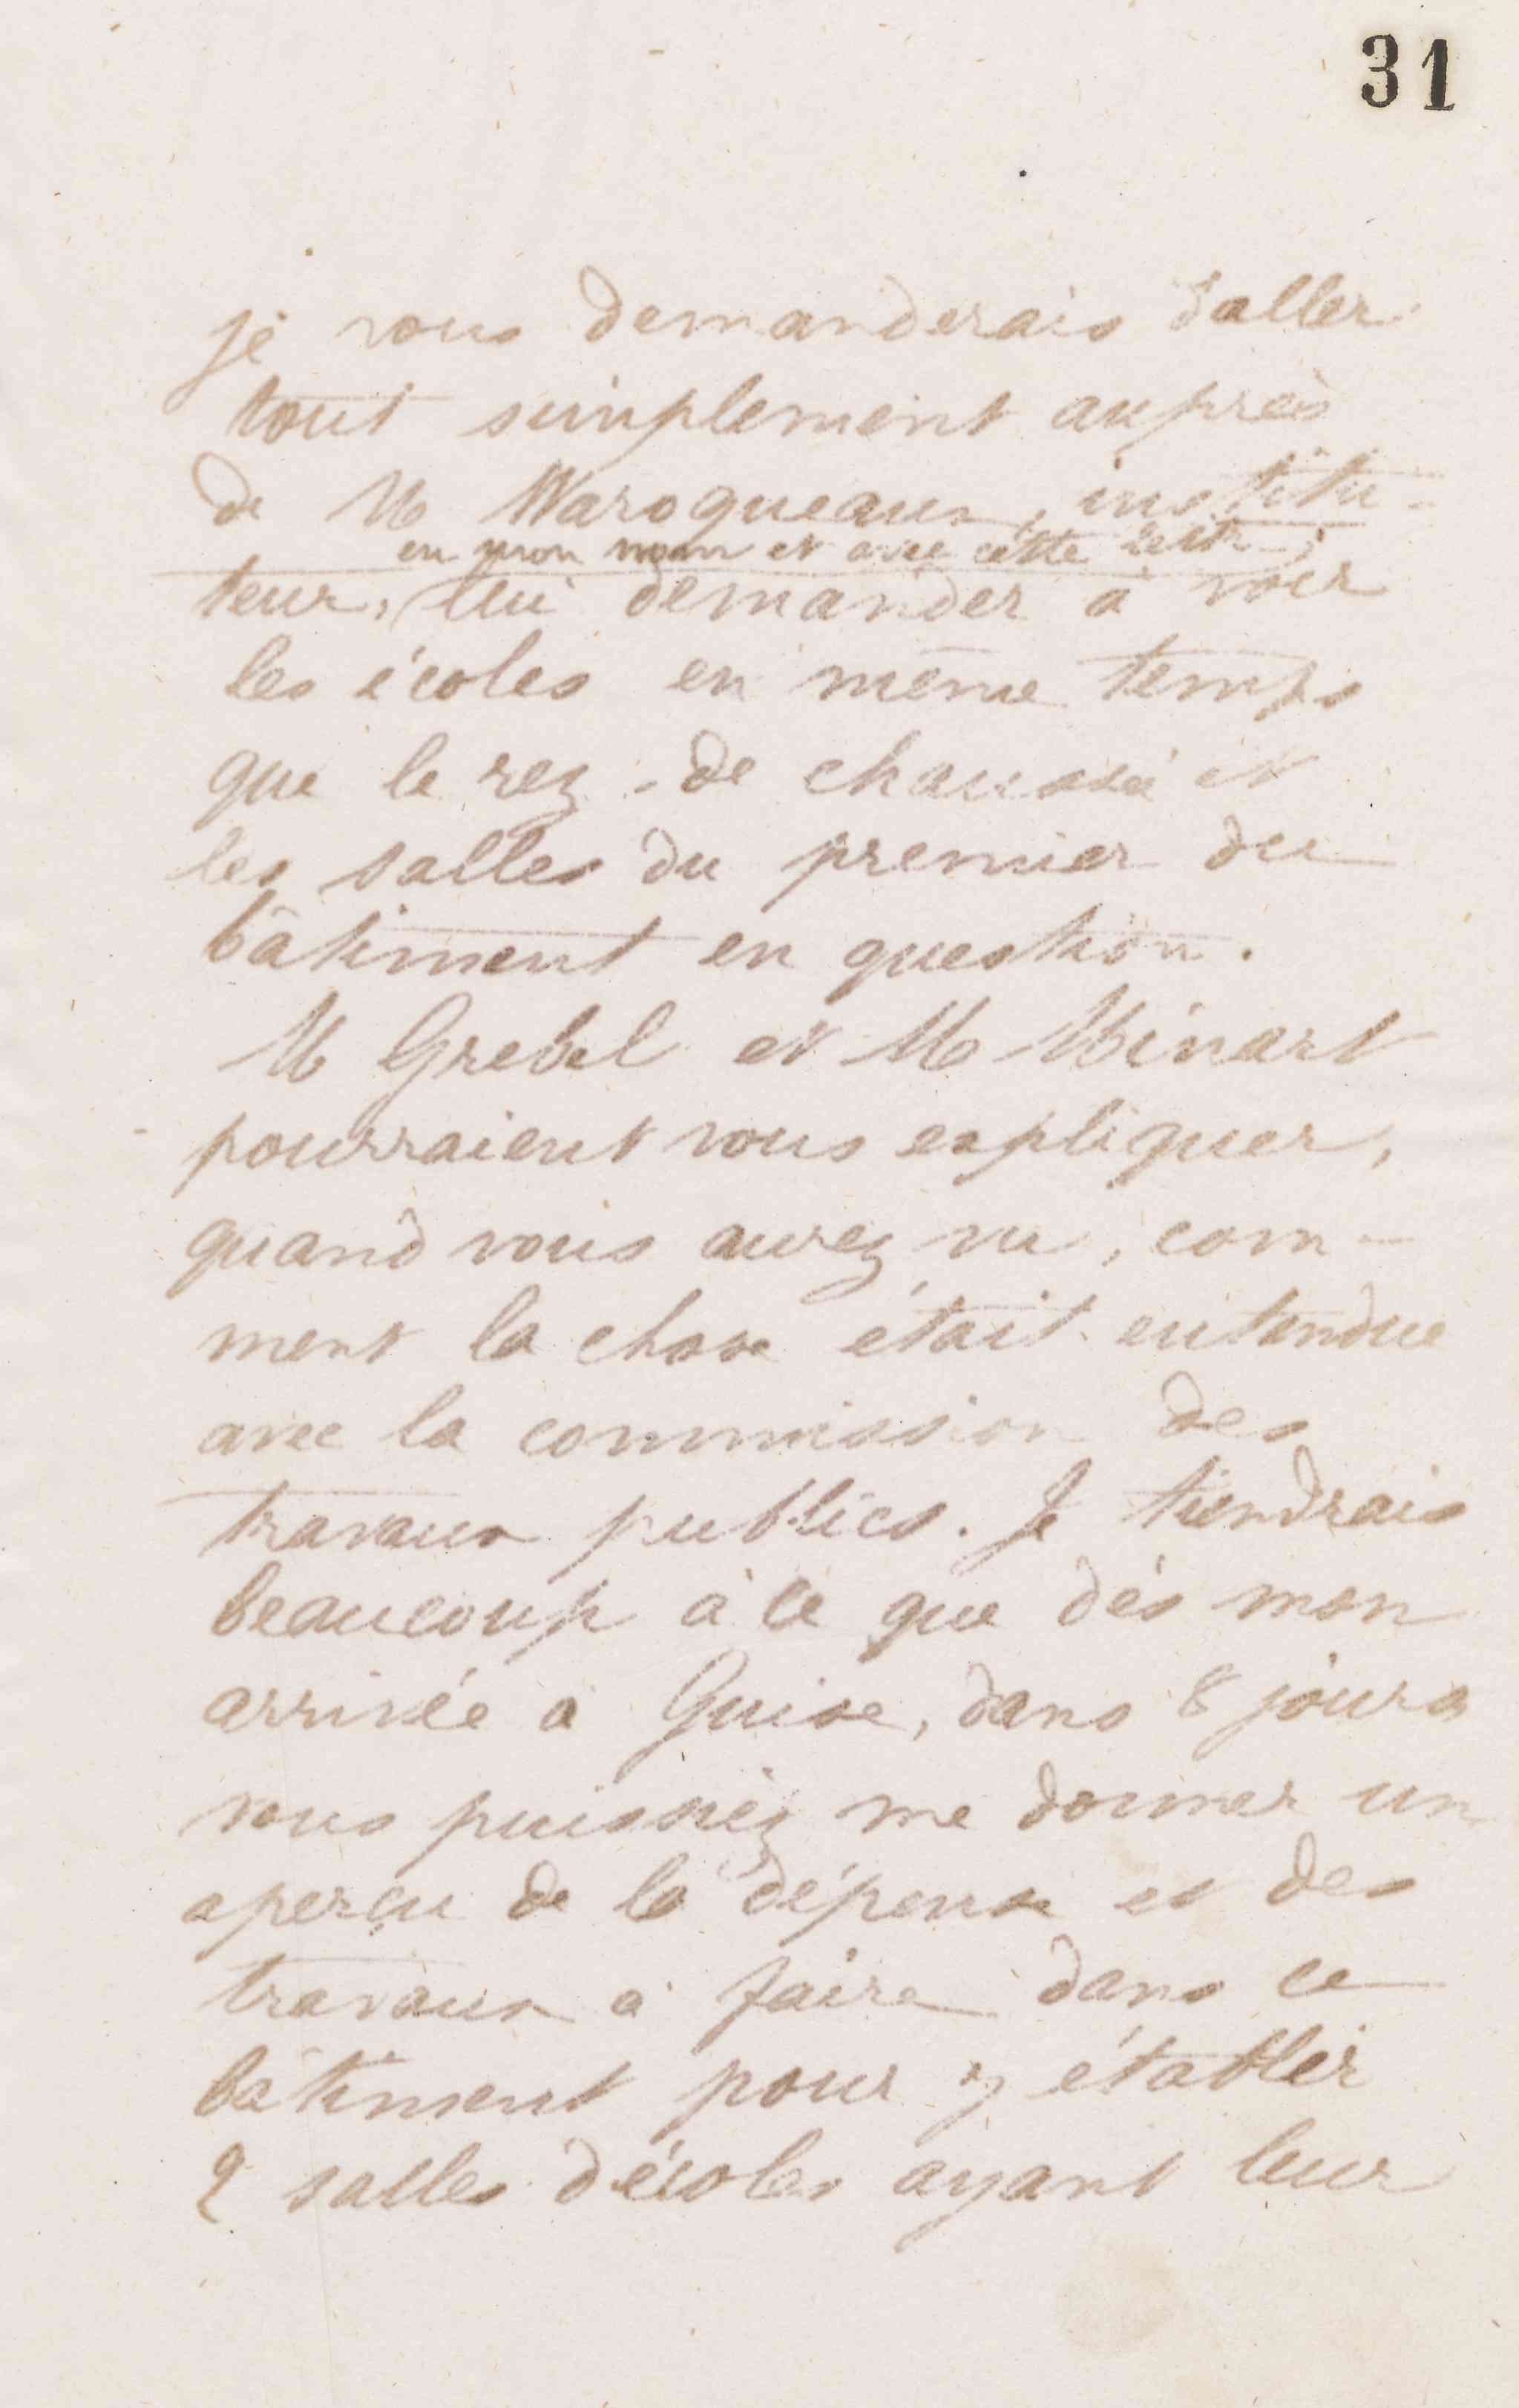 31
je vous demanderais d'aller
tout simplement auprès
de M Waroqueaux, institu-
en mon nom et avec cette lettre,
teur, lui demander à voir
les écoles en même temps
que le rez-de chaussée et
les salles du premier du
bâtiment en question.
M Grebel et M Minart
pourraient vous expliquer,
quand vous aurez vu, com-
ment la chose était entendue
avec la commission des
travaux publics. Je tiendrais
beaucoup à ce que dès mon
arrivée à Guise, dans 8 jours
vous puissiez me donner un
aperçu de la dépense et des
travaux à faire dans ce
bâtiment pour y établir
2 salles d'écoles ayant leur